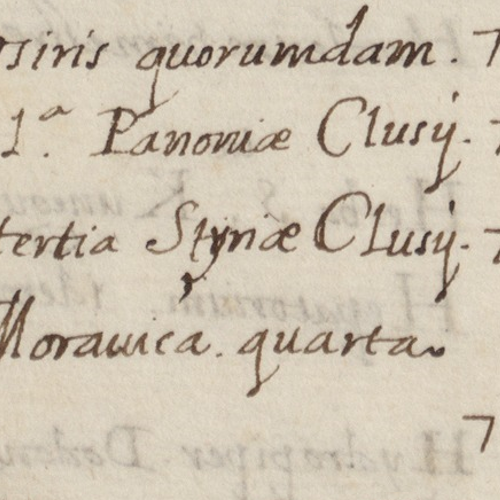 osiris quorumdam. 7
1ª. Panoniæ Clusÿ. 7
tertia Styriæ Clusÿ. 7
Morauica. quarta.
7